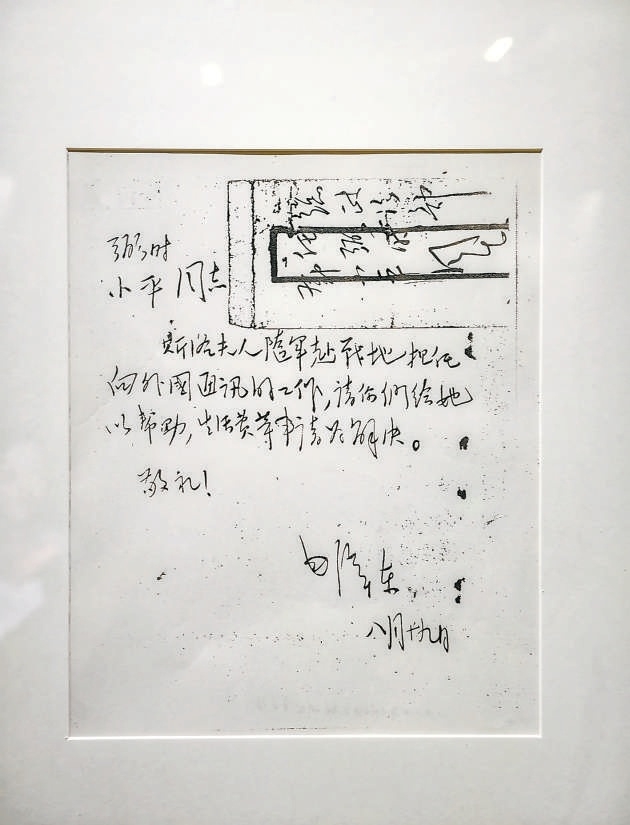 弼时
小平同志
斯洛夫人随军赴战地担任
向外国通讯的工作,请你們给她
以帮助,生活费等事请为解决。
敬礼!
毛泽东
八月十九日